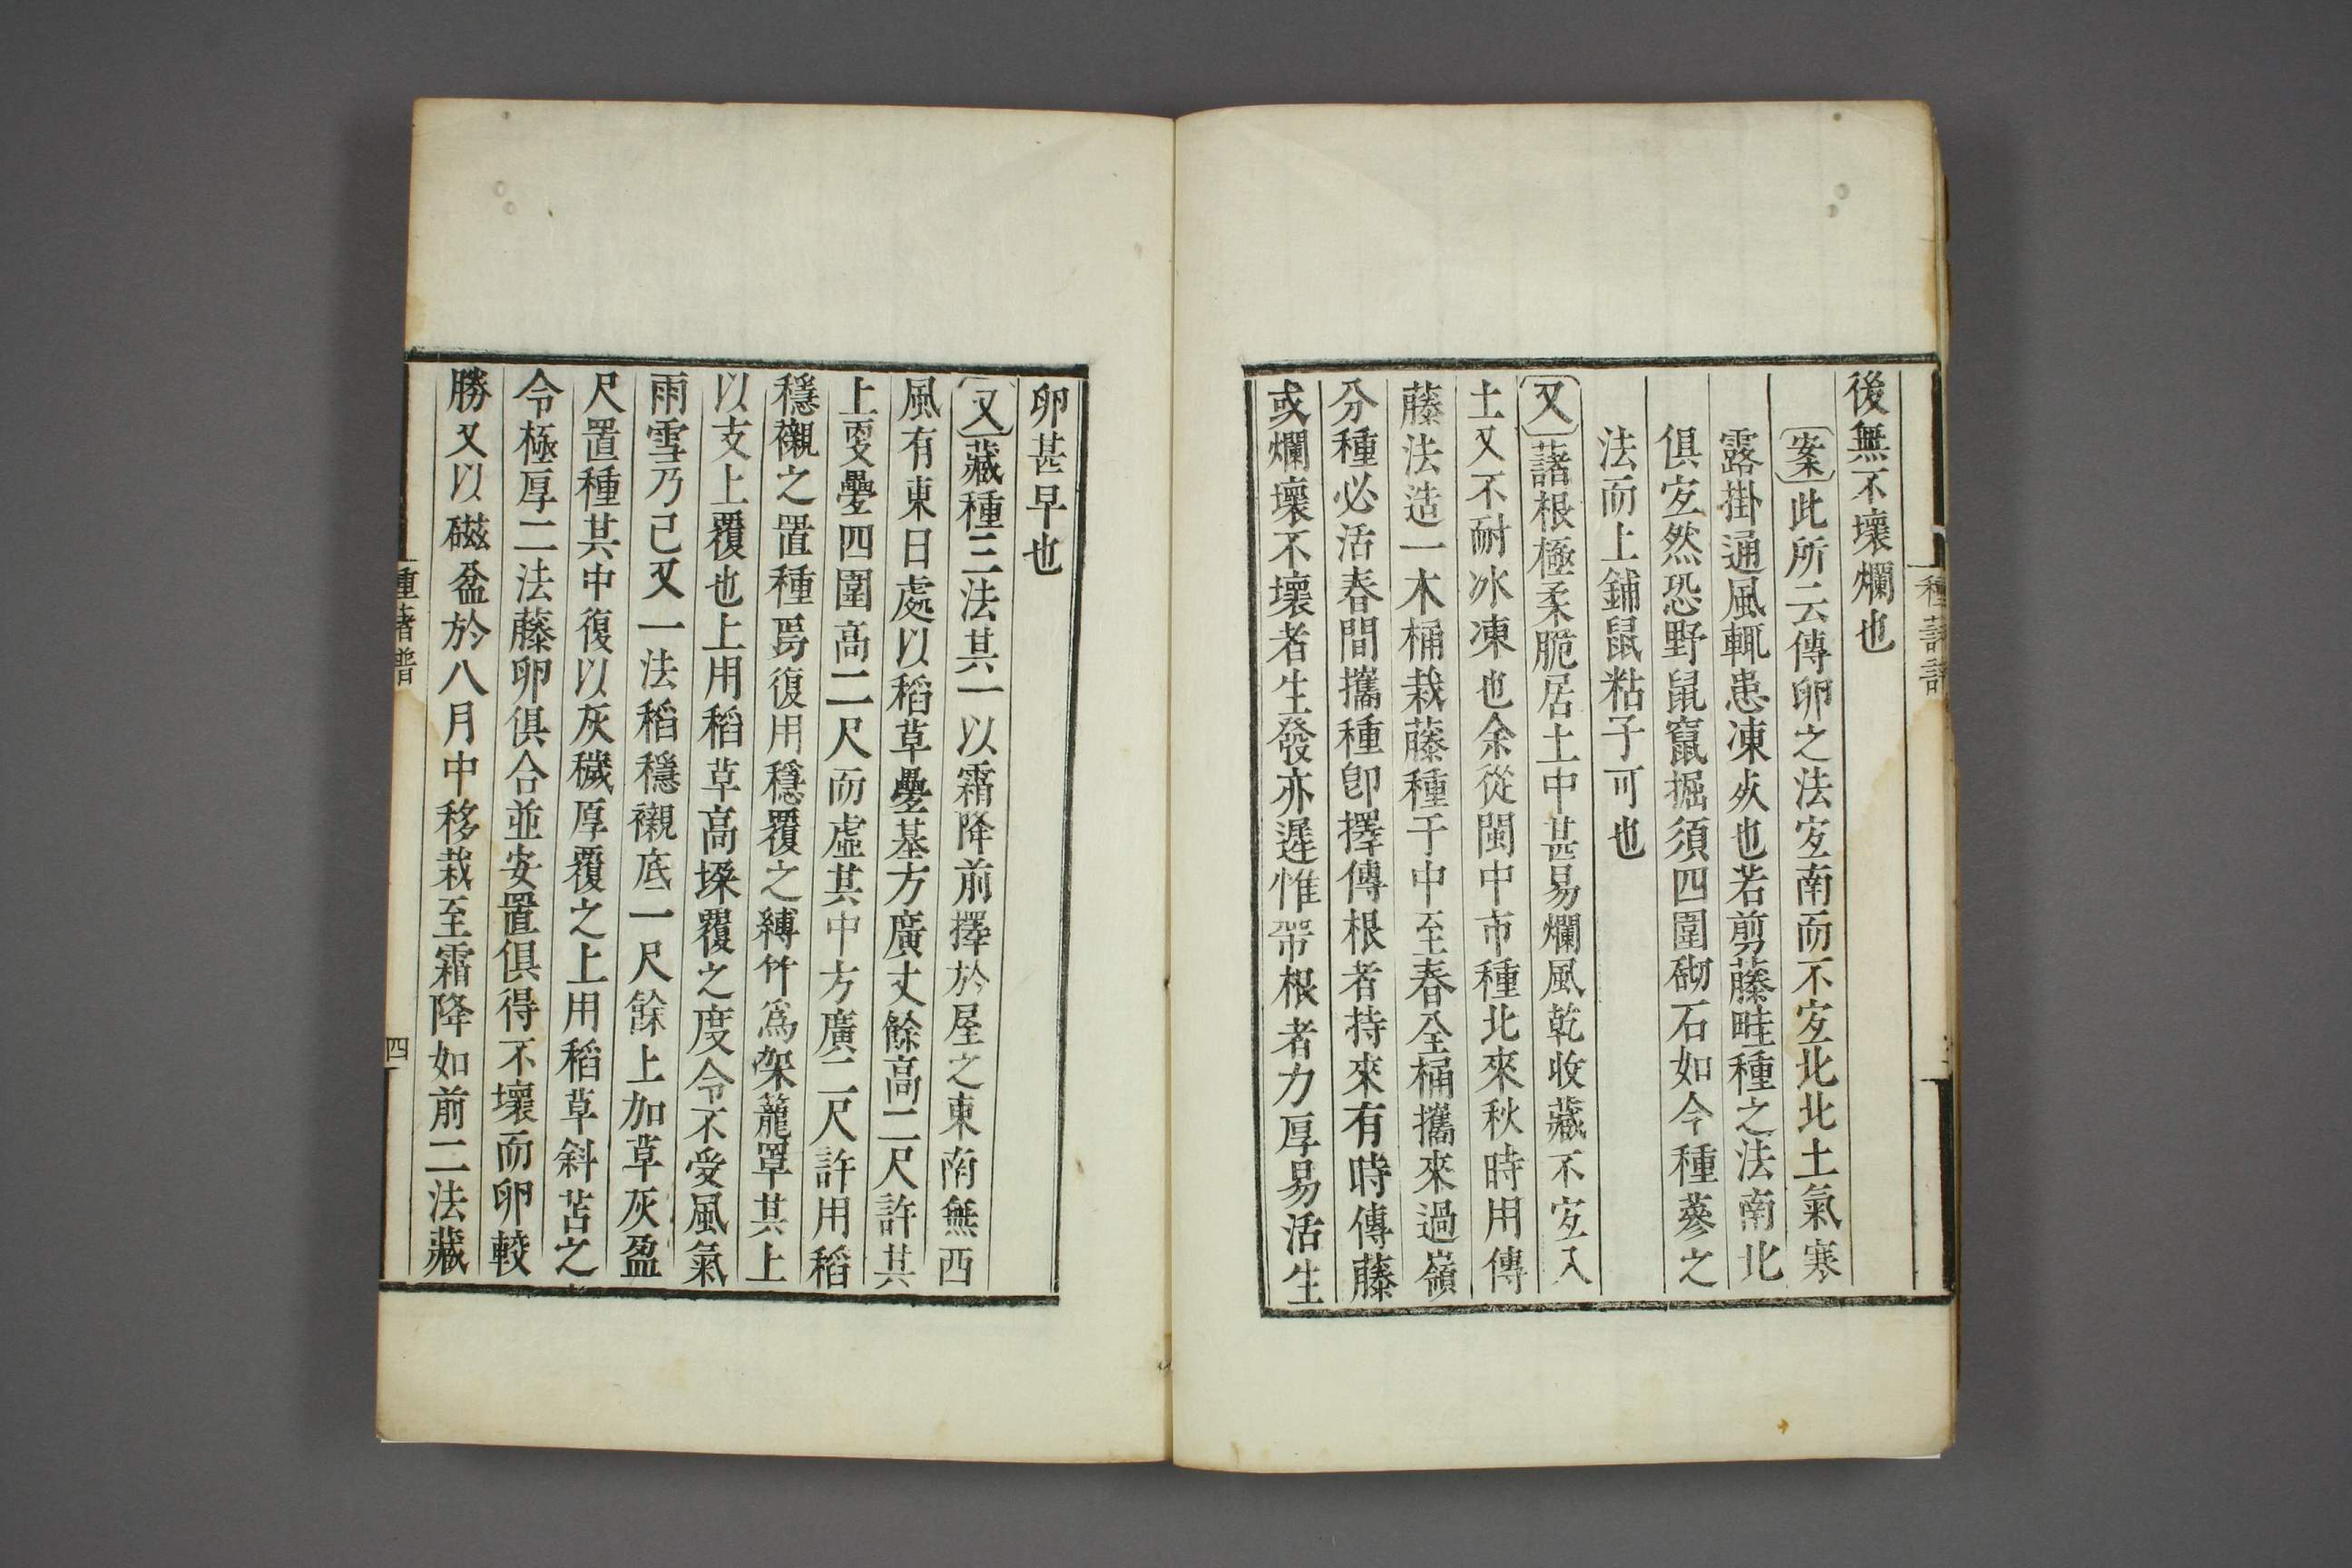 種藷譜
後無不壞爛也
案此所云傳卵之法宐南而不宐北北土氣寒
露掛通風輒患凍死也若剪藤畦種之法南北
俱宐然恐野鼠竄掘須四圍砌石如今種蔘之
法而上鋪鼠粘子可也
又藷根極柔脆居土中甚易爛風乾收藏不宐入
土又不耐冰凍也余從閩中市種北來秋時用傳
藤法造一木桶栽藤種于中至春全桶攜來過嶺
分種必活春間攜種卽擇傳根者持來有時傳藤
或爛壞不壞者生發亦遲惟帶根者力厚易活生
卵甚早也
又藏種三法其一以霜降前擇於屋之東南無西
風有東日處以稻草疊基方廣丈餘高二尺許其
上更疊四圍高二尺而虛其中方廣二尺許用稻
穩襯之置種焉復用穩覆之縛竹爲架籠罩其上
以支上覆也上用稻草高垜覆之度令不受風氣
雨雪乃已又一法稻穩襯底一尺餘上加草灰盈
尺置種其中復以灰穢厚覆之上用稻草斜苫之
令極厚二法藤卵俱合並安置俱得不壞而卵較
勝又以磁盆於八月中移栽至霜降如前二法藏
種藷譜
四